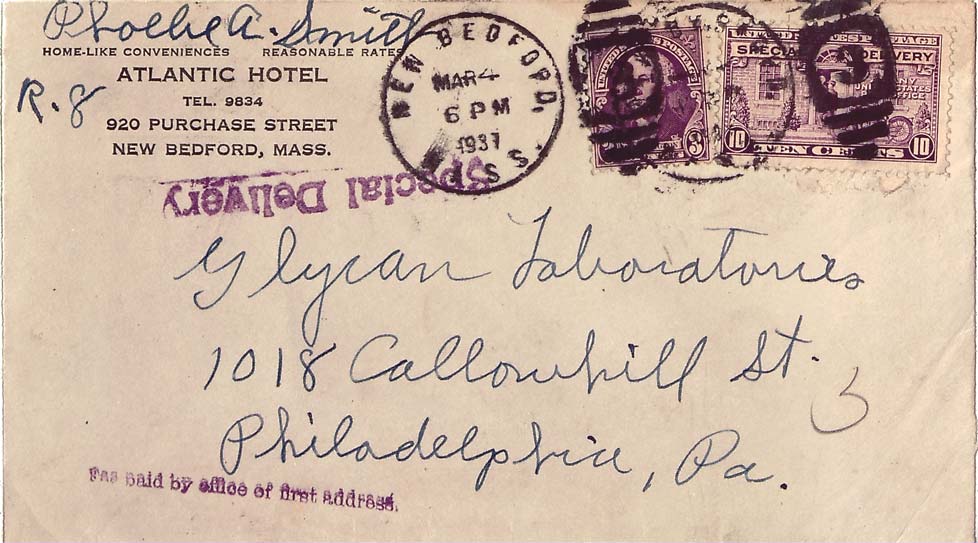 Phoebe A. Smith
HOME-LIKE CONVENIENCES REASONABLE RATES
ATLANTIC HOTEL
R. 8
TEL. 9834
920 PURCHASE STREET
NEW BEDFORD, MASS.
NEW BEDFORD, MASS.
MAR 4
6 PM
1937
UNITED STATES POSTAGE
3
SPECIAL DELIVERY
UNITED STATES
OFFICE
10 TEN CENTS 10
Special Delivery
Glycan Laboratories
1018 Callowhill St.
3
Philadelphia, Pa.
Fee paid by office of first address.